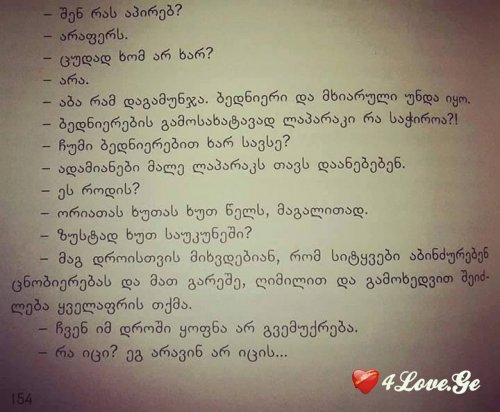 – შენ რას აპირებ?
– არაფერს.
– ცუდად ხომ არ ხარ?
– არა.
– აბა რამ დაგამუნჯა. ბედნიერი და მხიარული უნდა იყო.
– ბედნიერების გამოსახატავად ლაპარაკი რა საჭიროა?!
– ჩუმი ბედნიერებით ხარ სავსე?
– ადამიანები მალე ლაპარაკს თავს დაანებებენ.
– ეს როდის?
– ორიათას ხუთას ხუთ წელს, მაგალითად.
– ზუსტად ხუთ საუკუნეში?
– მაგ დროისთვის მიხვდებიან, რომ სიტყვები აბინძურებენ
ცნობიერებას და მათ გარეშე, ღიმილით და გამოხედვით შეიძ-
ლება ყველაფრის თქმა.
– ჩვენ იმ დროში ყოფნა არ გვემუქრება.
– რა იცი? ეგ არავინ არ იცის...
154
4Love.Ge